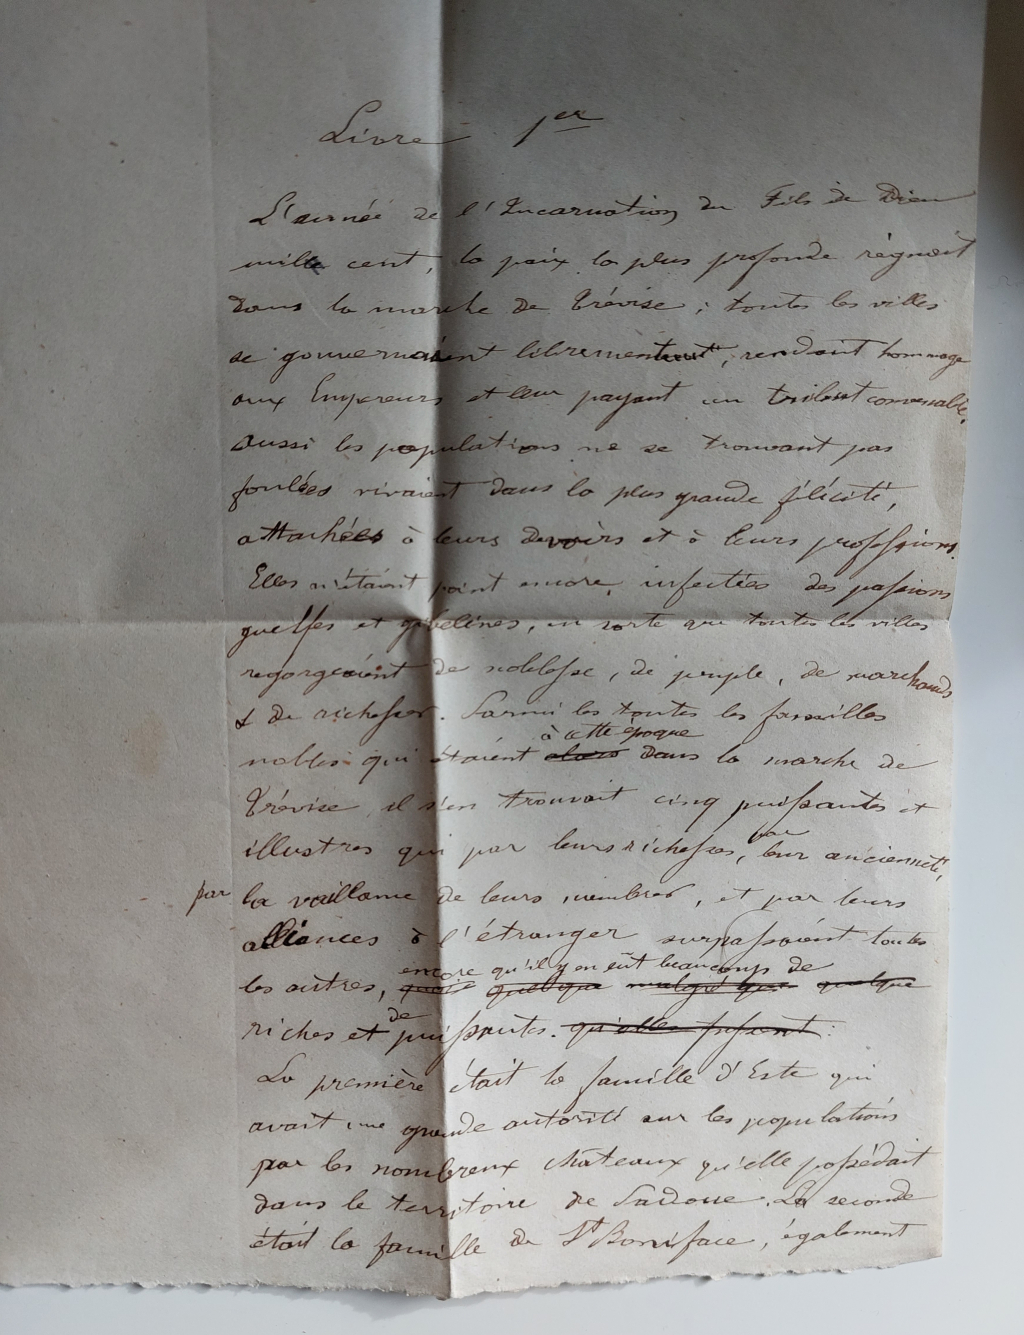 Livre 1er
L'année de l'Incarnation du Fils de Dieu
mille cent, la paix la plus profonde régnait
dans la marche de Trévise ; toutes les villes
se gouvernaient librement, rendant hommage
aux Empereurs et leur payant un tribut convenable.
aussi les populations ne se trouvant pas
foulées vivaient dans la plus grande félicité,
attachées à leurs devoirs et à leurs professions.
Elles n'étaient point encore infectées des passions
guelfes et gibelines, en sorte que toutes les villes
regorgeaient de noblesse, de peuple, de marchands
& de richesses. Parmi les toutes les familles
à cette époque
nobles qui étaient alors dans la marche de
Trévise il s'en trouvait cinq puissantes et
illustres qui par leurs richesses, par leur ancienneté,
par la vaillance de leurs membres, et par leurs
alliances à l'étranger surpassaient toutes
encore qu'il y en eût beaucoup de
les autres, quoique malgré que quelque
riches et de puissantes. qu'elles fussent :
La première était la famille d'Este qui
avait une grande autorité sur les populations
par les nombreux chateaux qu'elle possédait
dans le territoire de Padoue. La seconde
était la famille de St Boniface, également